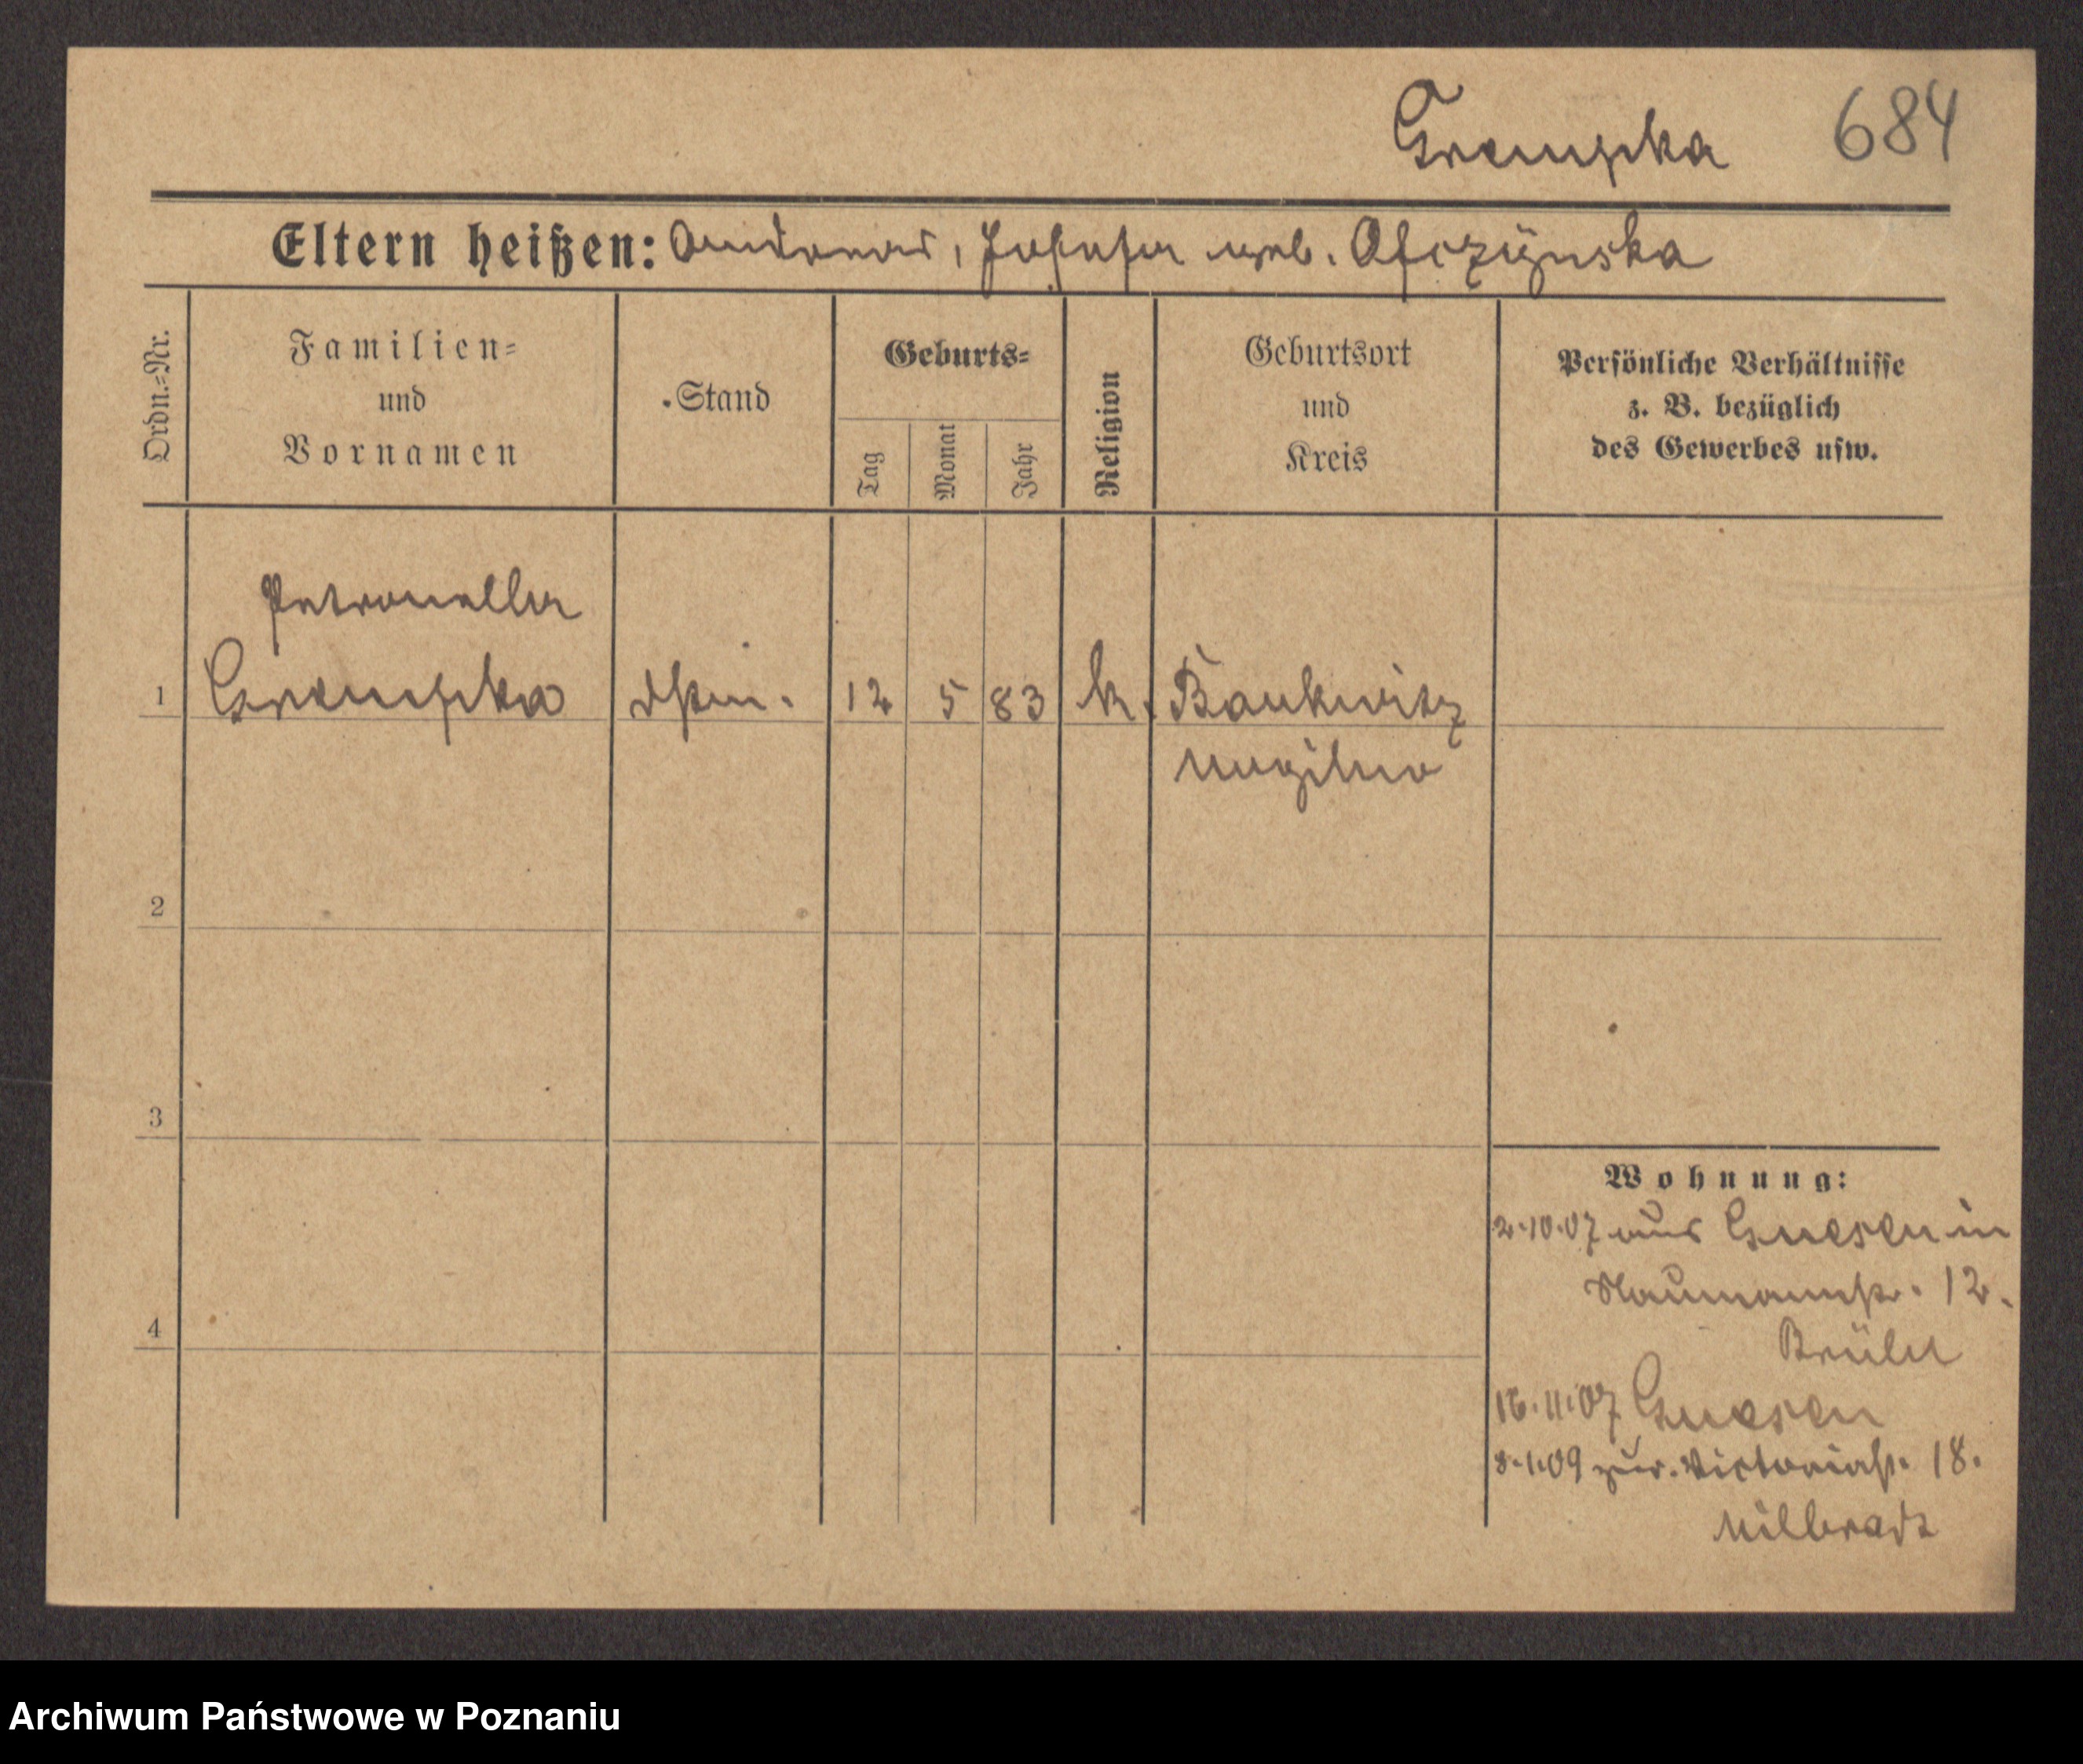 Grempka 684
Eltern heißen: Andreas, Josefa geb. Ofczynska
Ordn.-Nr.
Familien-
und
Vornamen
Stand
Geburts-
Tag
Monat
Jahr
Religion
Geburtsort
und
Kreis
Persönliche Verhältnisse
z. B. bezüglich
des Gewerbes usw.
Petronella
1 Grempka 12 5 83 k. Baukwitz
Mogilno
2
3
4
Wohnung:
2.10.07 aus Gnesen in
Naumannstr. 12.
Brühl
16.11.07 Gnesen
8.1.09 zur. Victoriastr. 18.
Milbradt
Archiwum Państwowe w Poznaniu